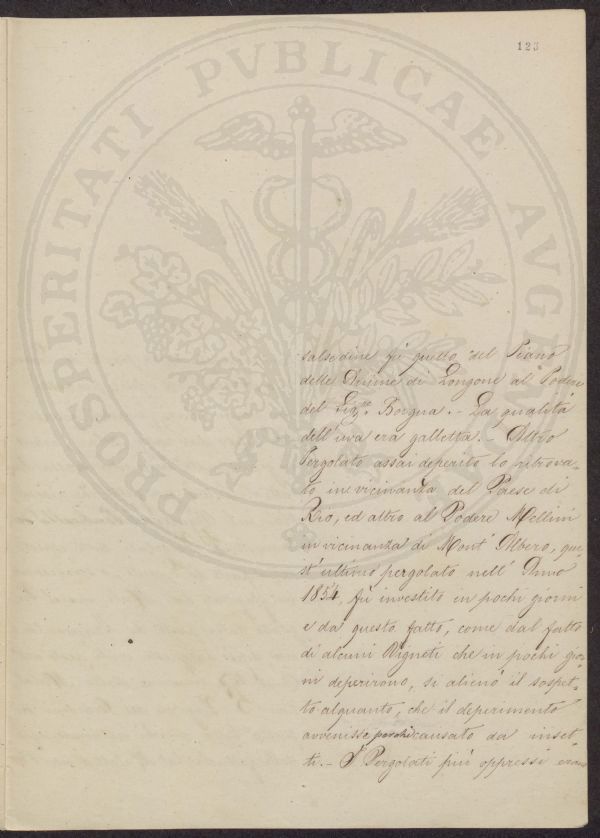 123
PROSPERITATI PVBLICAE AVGE
salsedine fù quello del Piano
delle Arrime di Longone al Podere
del Sig.re Borgna. - La qualità
dell'uva era galletta. - Altro
Pergolato assai deperito lo ritrova-
to in vicinanza del Paese di
Rio, ed altro al Podere Mellini
in vicinanza di Mont'Albero, que-
st'ultimo pergolato nell'Anno
1854, fù investito in pochi giorni
e da questo fatto, come dal fatto
di alcuni Vigneti che in pochi gior-
ni deperirono, si alienò il sospet-
to alquanto, che il deperimento
avvenisse perchè causato da inset-
ti. - I Pergolati più oppressi erano